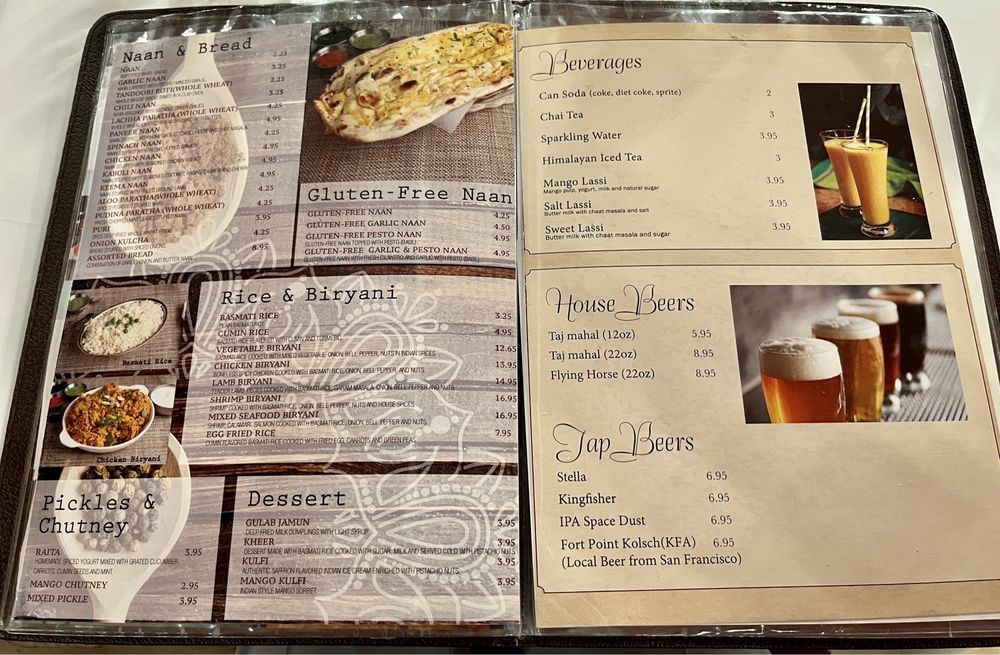 Naan & Bread
NAAN 2.25
GARLIC NAAN 3.25
TANDOORI ROTI(WHOLE WHEAT) 2.25
WHOLE WHEAT BREAD BAKED IN A CLAY OVEN
CHILI NAAN 3.25
LACHHA PARATHA (WHOLE WHEAT) 4.25
PANEER NAAN 4.95
SPINACH NAAN 4.25
CHICKEN NAAN 4.95
KABULI NAAN 4.95
KEEMA NAAN 4.95
ALOO PARATHA(WHOLE WHEAT) 4.25
PUDINA PARATHA (WHOLE WHEAT) 4.25
PURI 3.95
ONION KULCHA 4.25
ASSORTED BREAD 8.95
COMBINATION OF GARLIC, ONION AND BUTTER NAAN
Gluten-Free Naan
GLUTEN-FREE NAAN 4.25
GLUTEN-FREE GARLIC NAAN 4.50
GLUTEN-FREE PESTO NAAN 4.95
GLUTEN-FREE NAAN TOPPED WITH PESTO (BASIL)
GLUTEN-FREE GARLIC & PESTO NAAN 4.95
GLUTEN-FREE NAAN WITH FRESH CILANTRO AND GARLIC WITH PESTO (BASIL)
Basmati Rice
Chicken Biryani
Rice & Biryani
BASMATI RICE 3.25
PLAIN BASMATI RICE
CUMIN RICE 4.95
BASMATI RICE FLAVORED WITH CUMIN AND TURMERIC
VEGETABLE BIRYANI 12.65
BASMATI RICE COOKED WITH MIXED VEGETABLE, ONION, BELL PEPPER, NUTS IN INDIAN SPICES
CHICKEN BIRYANI 13.95
BONELESS SPICY CHICKEN COOKED WITH BASMATI RICE, ONION, BELL PEPPER, AND NUTS
LAMB BIRYANI 14.95
TENDER LAMB PIECES COOKED WITH BASMATI RICE, GARAM MASALA, ONION, BELL PEPPER AND NUTS
SHRIMP BIRYANI 16.95
SHRIMP COOKED WITH BASMATI RICE, ONION, BELL PEPPER, NUTS AND HOUSE SPICES
MIXED SEAFOOD BIRYANI 16.95
SHRIMP, CALAMARI, SALMON COOKED WITH BASMATI RICE, ONION, BELL PEPPER AND NUTS
EGG FRIED RICE 7.95
CUMIN FLAVORED BASMATI RICE COOKED WITH FRIED EGG, CARROTS AND GREEN PEAS
Pickles &
Chutney
RAITA 3.95
HOMEMADE SPICED YOGURT MIXED WITH GRATED CUCUMBER,
CARROTS, CUMIN SEEDS AND MINT
MANGO CHUTNEY 2.95
MIXED PICKLE 3.95
Dessert
GULAB JAMUN 3.95
DEEP FRIED MILK DUMPLINGS WITH LIGHT SYRUP
KHEER 3.95
DESSERT MADE WITH BASMATI RICE COOKED WITH SUGAR, MILK AND SERVED COLD WITH PISTACHIO NUTS
KULFI 3.95
AUTHENTIC SAFFRON FLAVORED INDIAN ICE CREAM ENRICHED WITH PISTACHIO NUTS
MANGO KULFI 3.95
INDIAN STYLE MANGO SORBET
Beverages
Can Soda (coke, diet coke, sprite) 2
Chai Tea 3
Sparkling Water 3.95
Himalayan Iced Tea 3
Mango Lassi 3.95
Mango pulp, yogurt, milk and natural sugar
Salt Lassi 3.95
Butter milk with chaat masala and salt
Sweet Lassi 3.95
Butter milk with chaat masala and sugar
House Beers
Taj mahal (12oz) 5.95
Taj mahal (22oz) 8.95
Flying Horse (22oz) 8.95
Tap Beers
Stella 6.95
Kingfisher 6.95
IPA Space Dust 6.95
Fort Point Kolsch(KFA) 6.95
(Local Beer from San Francisco)